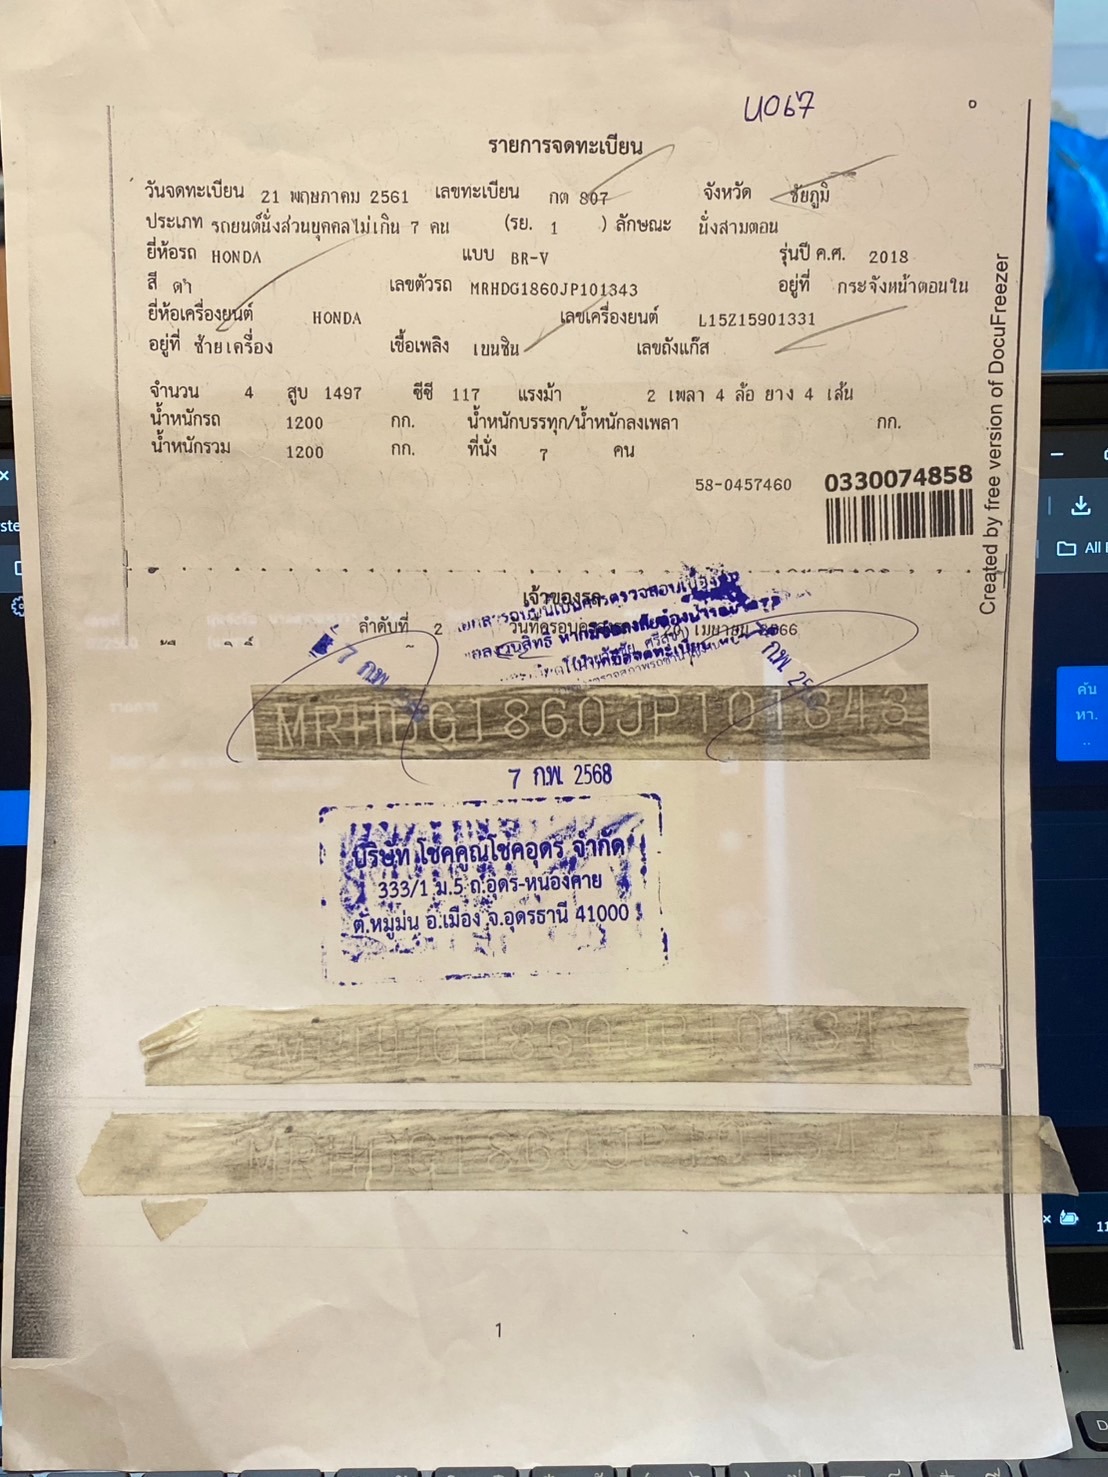 น067
รายการจดทะเบียน
วันจดทะเบียน 21 พฤษภาคม 2561 เลขทะเบียน กต 807 จังหวัด ชัยภูมิ
ประเภท รถยนต์นั่งส่วนบุคคลไม่เกิน 7 คน (รย. 1 ) ลักษณะ นั่งสามตอน
ยี่ห้อรถ HONDA แบบ BR-V รุ่นปี ค.ศ. 2018
สี ดำ เลขตัวรถ MRHDG1860JP101343 อยู่ที่ กระจังหน้าตอนใน
ยี่ห้อเครื่องยนต์ HONDA เลขเครื่องยนต์ L15Z15901331
อยู่ที่ ซ้ายเครื่อง เชื้อเพลิง เบนซิน เลขถังแก๊ส
จำนวน 4 สูบ 1497 ซีซี 117 แรงม้า 2 เพลา 4 ล้อ ยาง 4 เส้น
น้ำหนักรถ 1200 กก. น้ำหนักบรรทุก/น้ำหนักลงเพลา กก.
น้ำหนักรวม 1200 กก. ที่นั่ง 7 คน
58-0457460 0330074858
Created by free version of DocuFreezer
เจ้าของรถ
ลำดับที่ 2 เมษายน 2566
7 ก.พ.
MRHDG1860JP101343
7 ก.พ. 2568
บริษัท โชคคูณโชคอุดร จำกัด
333/1 ม.5 ถ.อุดร-หนองคาย
ต.หมูม่น อ.เมือง จ.อุดรธานี 41000
MRHDG1860JP101343
MRHDG1860JP101343
1
ค้น
หา.
..
All